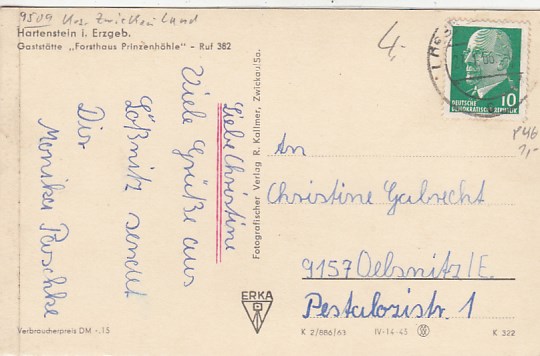 9509 Krs. Zwickau Land
Hartenstein i. Erzgeb.
Gaststätte „Forsthaus Prinzenhöhle" - Ruf 382
4,-
DEUTSCHE
DEMOKRATISCHE REPUBLIK
10
1,-
Liebe Christine
Viele Grüße aus
Lößnitz sendet
Dir
Monika Paschke
Fotografischer Verlag R. Kallmer, Zwickau/Sa.
An
Christine Gabrecht
9157 Oelsnitz/E.
Pestalozistr. 1
ERKA
Verbraucherpreis DM -,15
K 2/886/63 IV-14-45
K 322